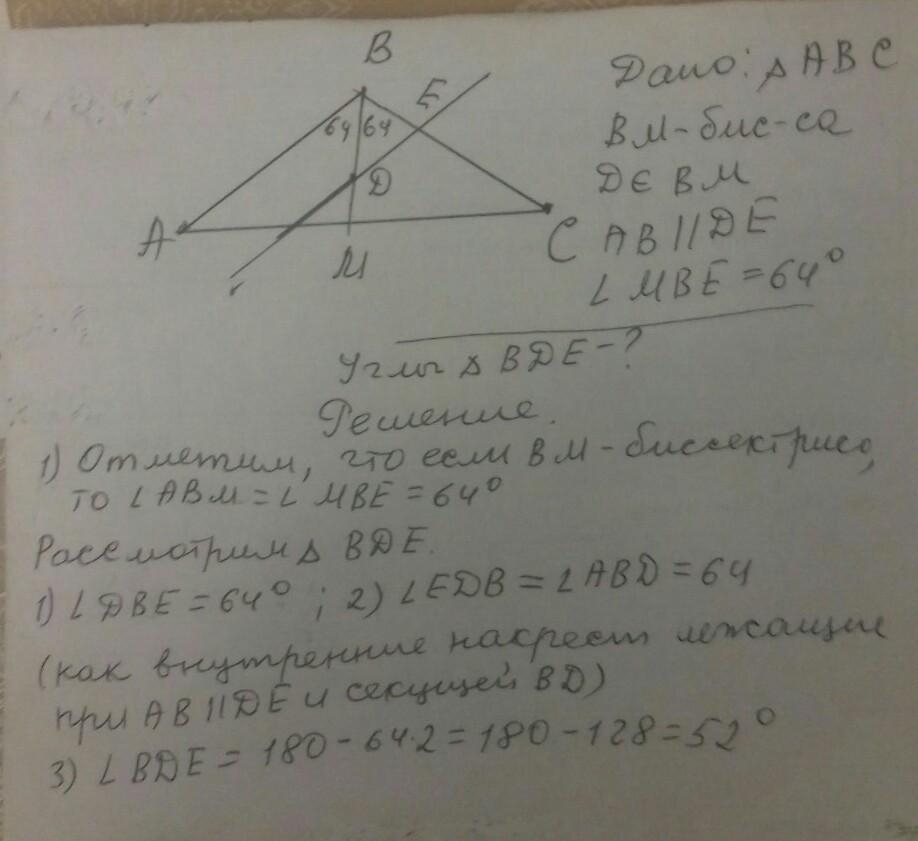 B
E
64 64
D
A
C
M
Дано: △ ABC
BM - бис-са
D ∈ BM
AB || DE
∠ MBE = 64°
Углы △ BDE - ?
Решение.
1) Отметим, что если BM - биссектриса,
то ∠ ABM = ∠ MBE = 64°
Рассмотрим △ BDE.
1) ∠ DBE = 64° ; 2) ∠ EDB = ∠ ABD = 64
(как внутренние накрест лежащие
при AB || DE и секущей BD)
3) ∠ BDE = 180 - 64·2 = 180 - 128 = 52°